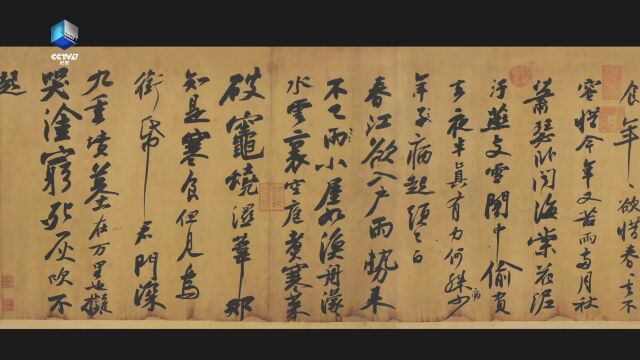 CCTV9
纪录
食年〻欲惜春〻去不
容惜今年又苦雨兩月秋
蕭瑟卧聞海棠花泥
汙燕支雪闇中偷負
去夜半真有力何殊病少
年子病起頭已白
春江欲入户雨勢來
不已雨小屋如漁舟濛〻
水雲裏空庖煮寒菜
破竈燒濕葦那
知是寒食但見烏
銜帋君門深
九重墳墓在万里也擬
哭塗窮死灰吹不
起